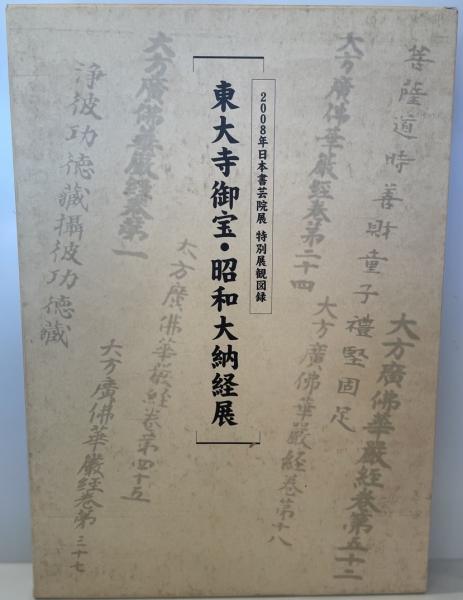 2008年日本書芸院展 特別展観図録
東大寺御宝・昭和大納経展
菩薩道時善財童子禮堅固足
大方廣佛華嚴經卷第五十二
大方廣佛華嚴經卷第二十四
大方廣佛華嚴經卷第十八
大方廣佛華嚴經卷第一
大方廣佛華嚴經卷第四十五
大方廣佛華嚴經卷第三十七
淨彼功德藏攝彼功德藏